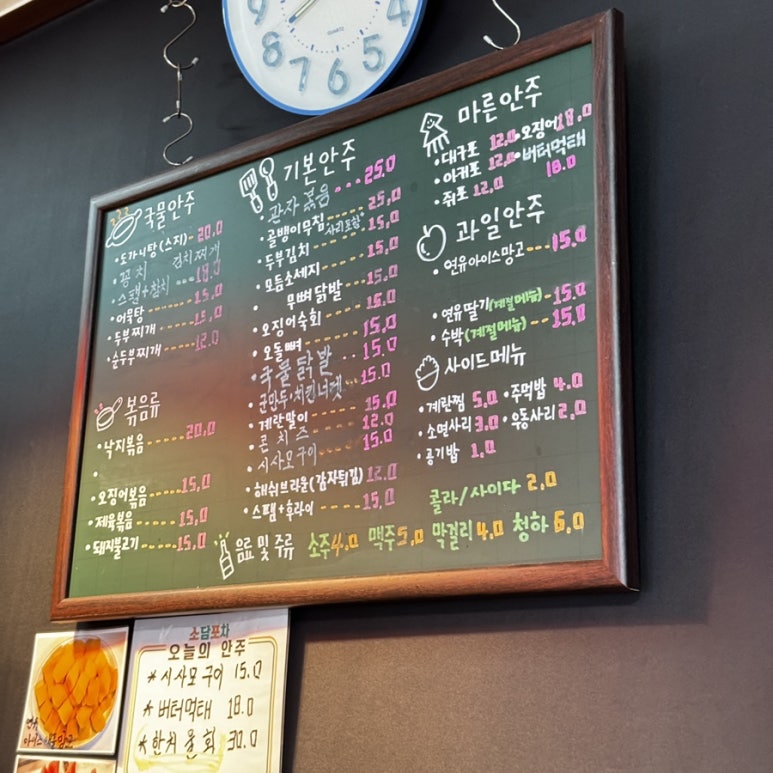 국물안주
도가니탕(스지) 20.0
꽁치 김치찌개
스팸+참치 18.0
어묵탕 15.0
두부찌개 15.0
순두부찌개 12.0
볶음류
낙지볶음 20.0
오징어볶음 15.0
제육볶음 15.0
돼지불고기 15.0
기본안주
관자볶음 25.0
골뱅이무침 25.0
사리포함
두부김치 15.0
모듬소세지 15.0
무뼈닭발 15.0
오징어숙회 15.0
오돌뼈 15.0
국물닭발 15.0
군만두·치킨너겟 15.0
계란말이 15.0
콘치즈 12.0
시사모구이 15.0
해쉬브라운(감자튀김) 12.0
스팸+후라이 15.0
마른안주
대구포 12.0 오징어 18.0
아귀포 12.0 버터먹태
쥐포 12.0 18.0
과일안주
연유아이스망고 15.0
연유딸기(계절메뉴) 15.0
수박(계절메뉴) 15.0
사이드메뉴
계란찜 5.0 주먹밥 4.0
소면사리 3.0 우동사리 2.0
공기밥 1.0
콜라/사이다 2.0
음료 및 주류 소주 4.0 맥주 5.0 막걸리 4.0 청하 6.0
소담포차
오늘의 안주
*시사모구이 15.0
*버터먹태 18.0
*한치물회 30.0
연유
9 8 7 6 5 4
QUARTZ